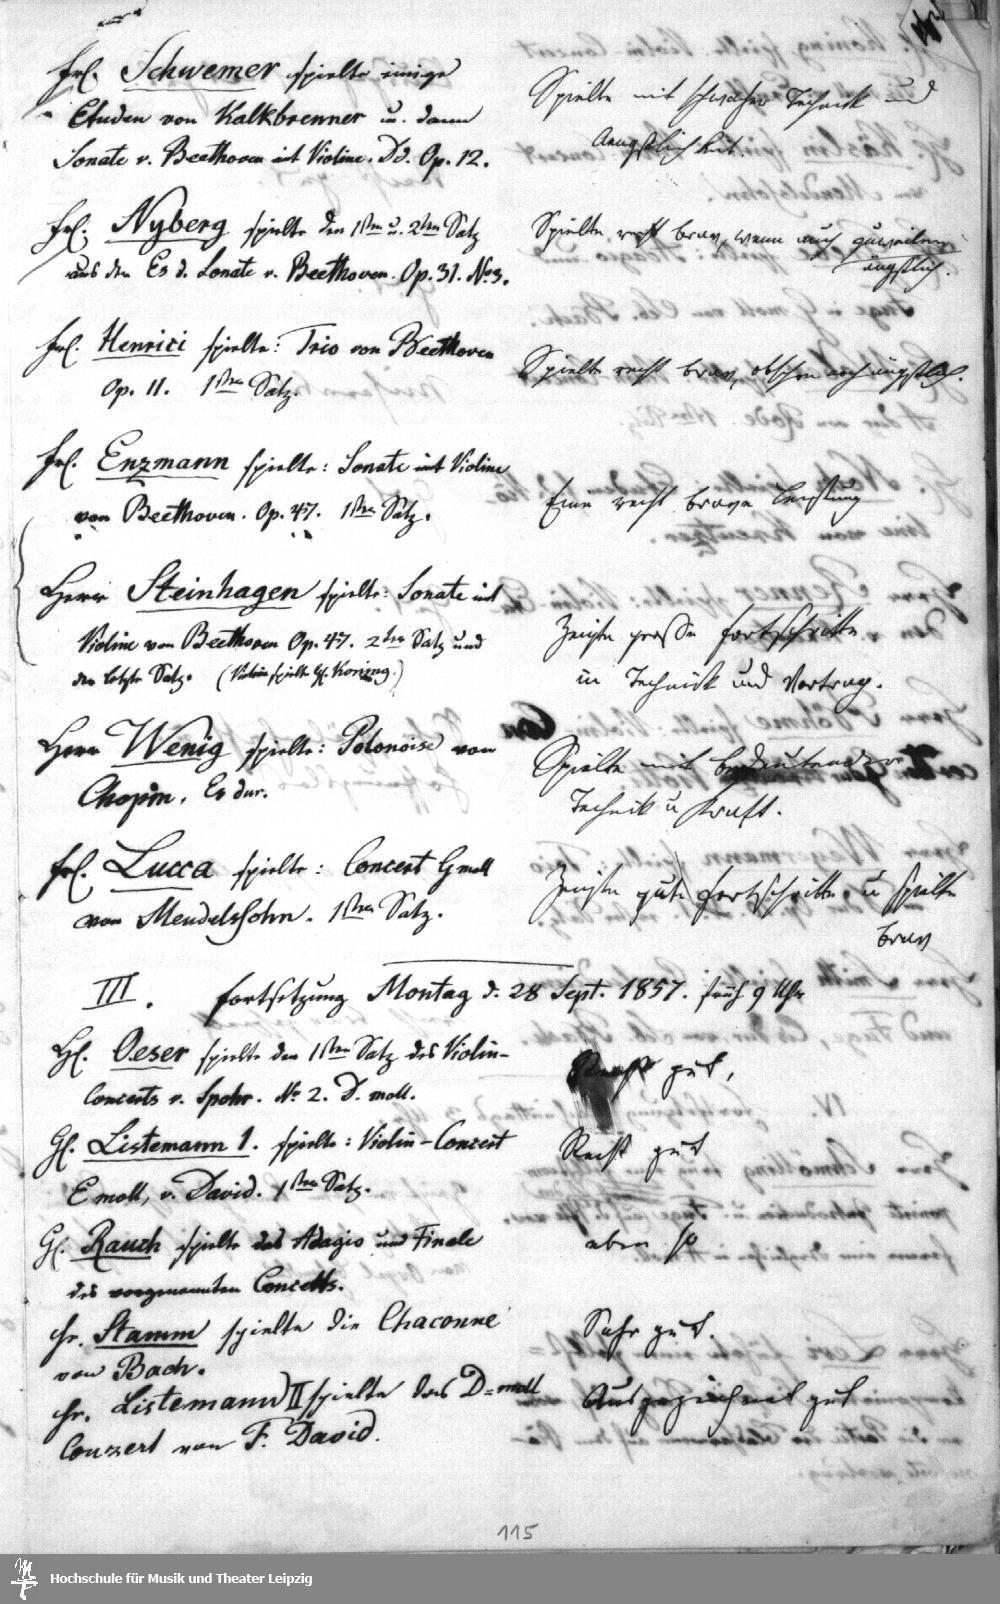 Frl. Schwemer spielte einige
Etuden von Kalkbrenner u. dann
Sonate v. Beethoven mit Violine. Dd. Op. 12.
Spielte mit schwacher Technick und
Aengstlichkeit.
Frl. Nyberg spielte den 1sten u. 2ten Satz
aus der Es d. Sonate v. Beethoven. Op. 31. No 3.
Spielte recht brav, wenn auch zuweilen
ängstlich.
Frl. Henrici spielte: Trio von Beethoven
Op. 11. 1ster Satz.
Spielte recht brav, obschon noch ängstlich.
Frl. Enzmann spielte: Sonate mit Violine
von Beethoven. Op. 47. 1ster Satz.
Eine recht brave Leistung
Herr Steinhagen spielte: Sonate mit
Violine von Beethoven Op. 47. 2ter Satz und
der letzte Satz. (Violin spielte H. Koning.)
Zeigte große Fortschritte
in Technick und Vortrag.
Herr Wenig spielte: Polonoise von
Chopin, Es dur.
Spielte mit bedeutender
Technik u Kraft.
Frl. Lucca spielte: Concert G moll
von Mendelssohn. 1ster Satz.
Zeigte gute Fortschritte u spielte
brav
III. Fortsetzung Montag d. 28 Sept. 1857. früh 9 Uhr
H. Oeser spielte den 1sten Satz des Violin-
Concerts v. Spohr. No 2. D. moll.
Recht gut,
H. Listemann 1. spielte: Violin-Concert
E moll, v. David. 1ster Satz.
Recht gut
H. Rauch spielte das Adagio und Finale
des vorgenannten Concerts.
eben so
Hr. Stamm spielte die Chaconne
von Bach.
Sehr gut.
Hr. Listemann II spielte das D=moll
Conzert von F. David.
Ausgezeichnet gut
115
Hochschule für Musik und Theater Leipzig